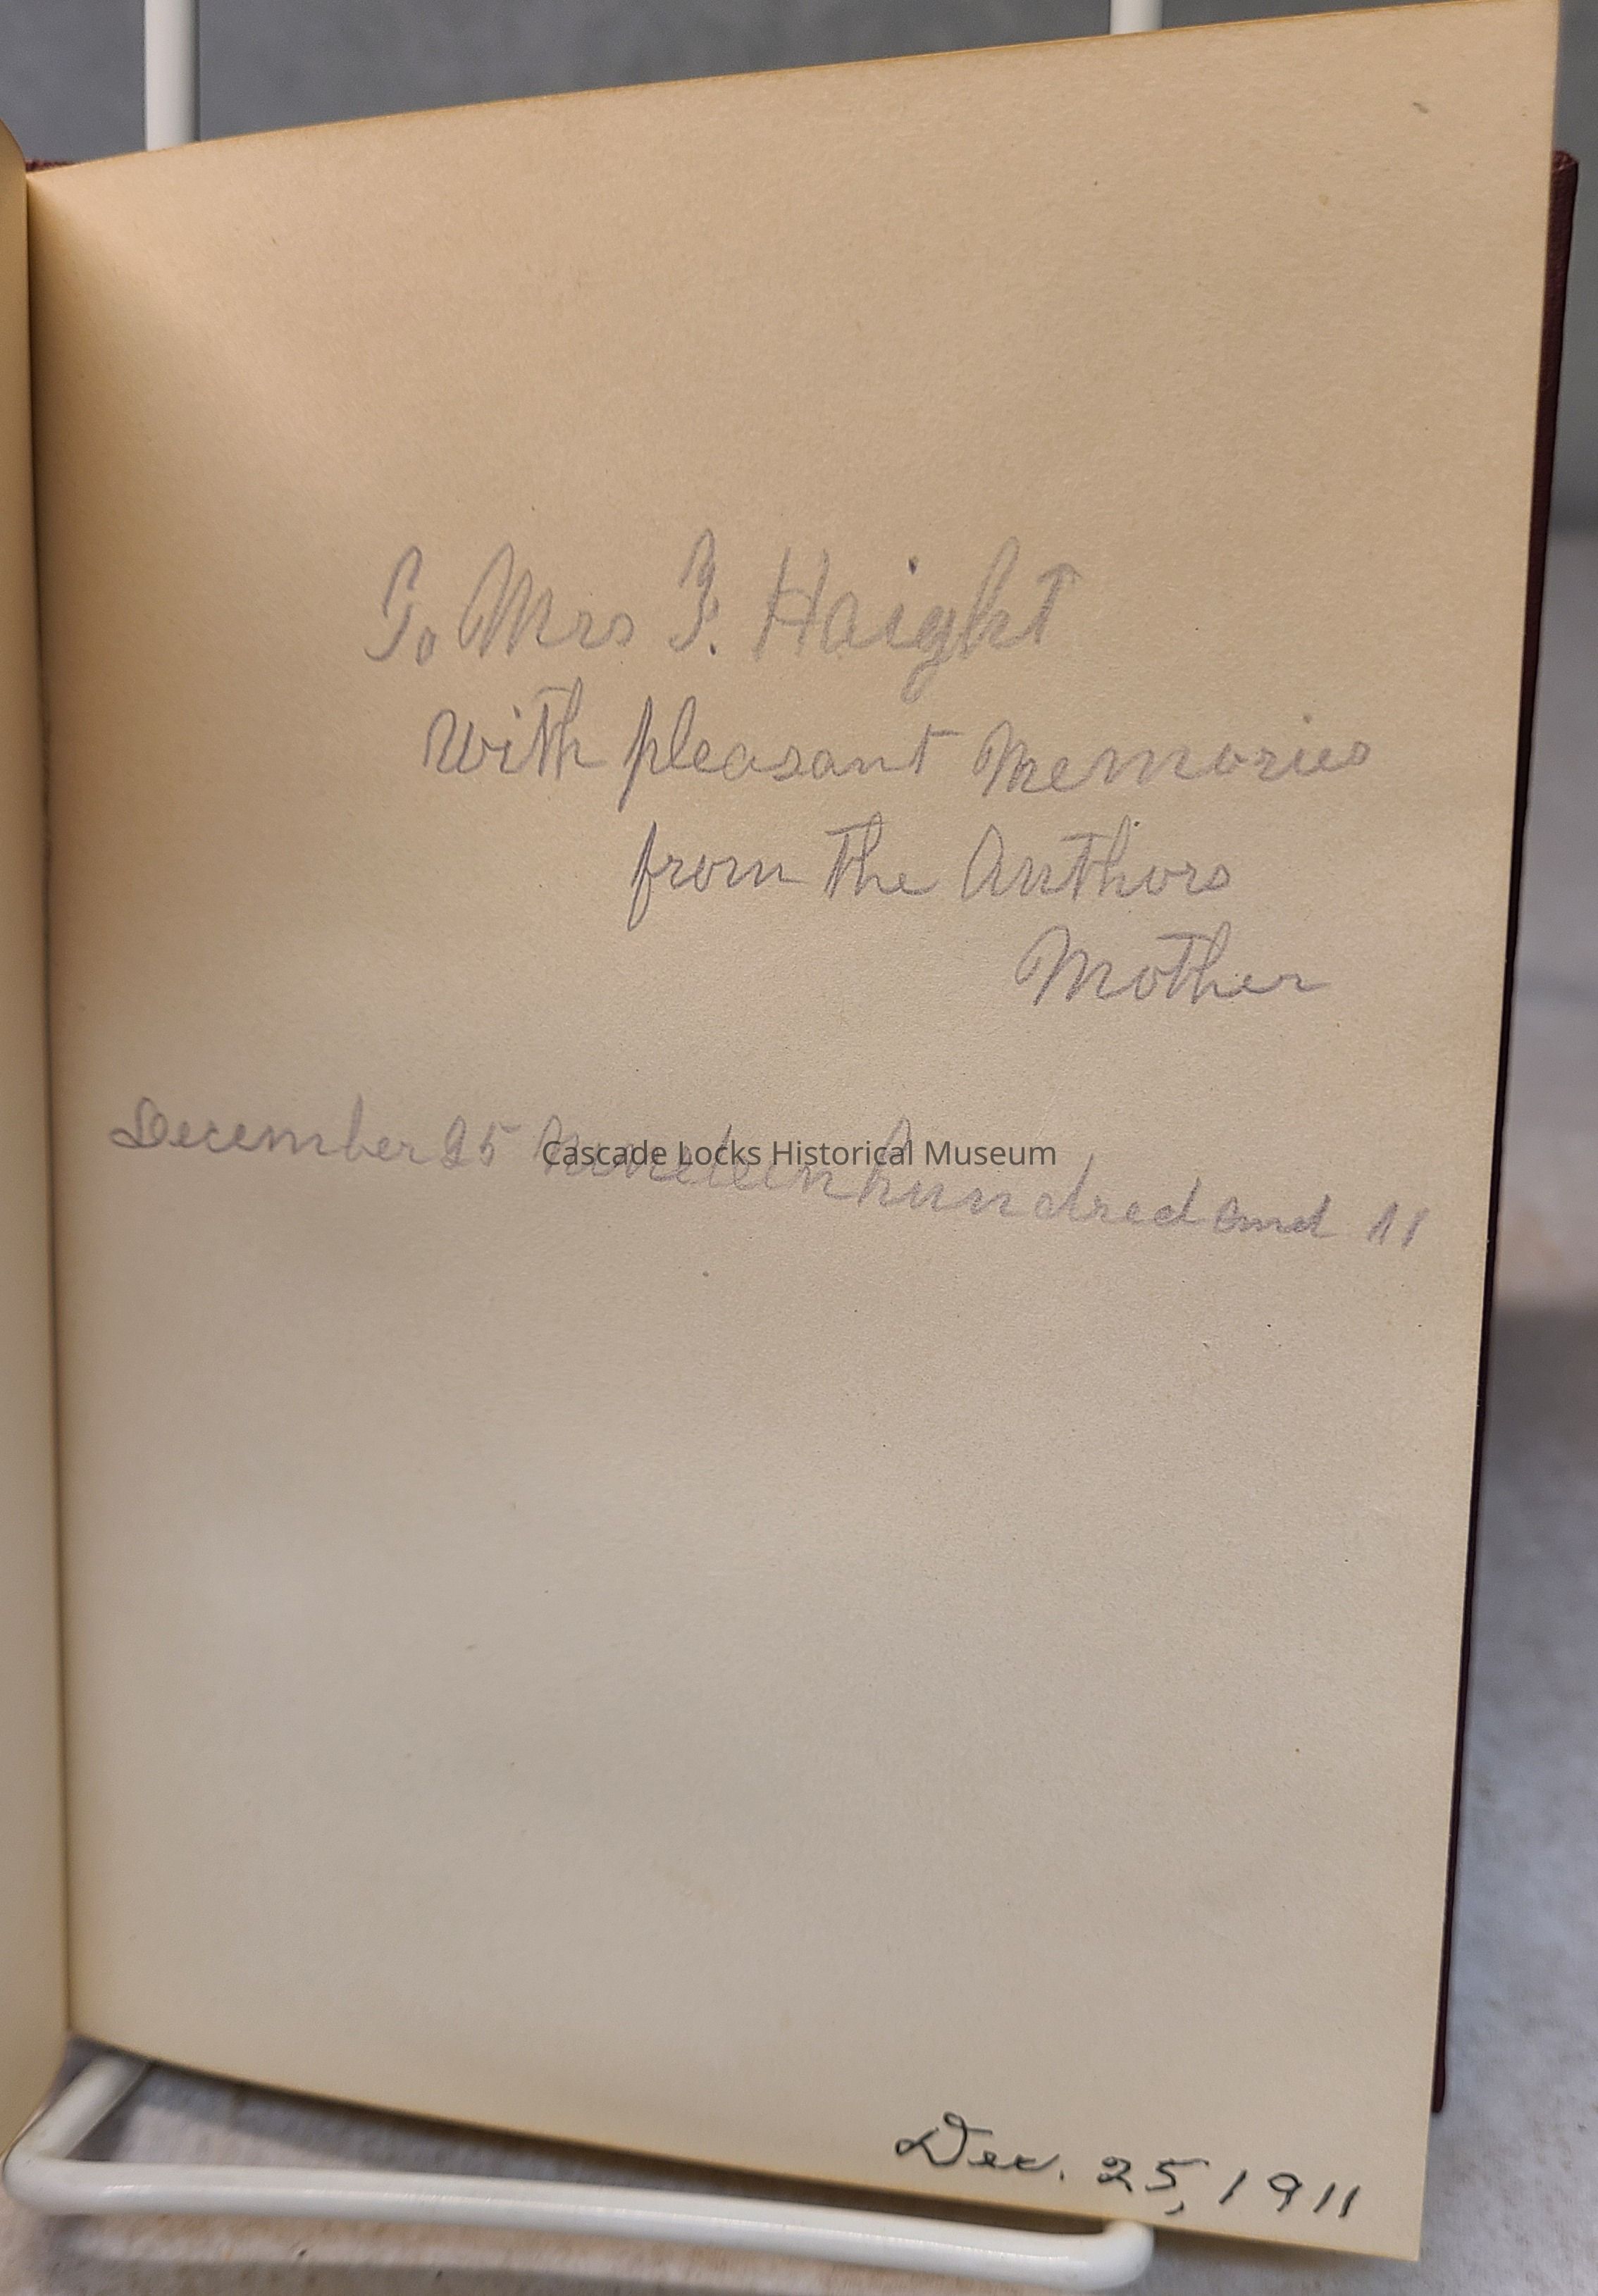 To Mrs F. Haight
With pleasant Memories
from the Authors
Mother
December 25 Nineteen hundred and 11
Cascade Locks Historical Museum
Dec. 25, 1911